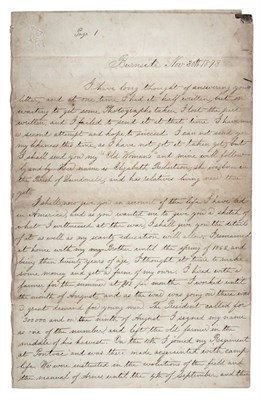 Page 1.
Nov 30th 1893
I have long thought of answering your
letter and at one time I had it half written, but
waiting to get some Photographs taken I lost the first
written and I failed to send it at that time I have
a second attempt and hope to succeed I can not send you
my likeness this time, as I have not got it taken yet, but
I shall send you my "Old Woman's" and mine will follow
by and by Her name is Elizabeth Robertson, she
the Parish of and has relations living near there
yet.
I shall now give you an account of the life I have led
in America, and as you wanted me to give you a sketch of
what I witnessed at the war, I shall give you the details
of it as well as my scanty education will allow I remained
at home with my until the Spring of 1862 and
being then twenty years of age I thought it time to make
some money and get a farm of my own I hired with a
farmer for the summer at per month I worked until
the month of August and as the war was going on there was
a great demand for young men, the President called for
300000 and on the tenth of August I signed my name
as one of the number and left the old farmer in the
middle of his harvest On the I joined my Regiment
at Pontiac and was there made acquainted with camp
life We were instructed in the evolutions of the
and the manual of Arms until the of September, and then